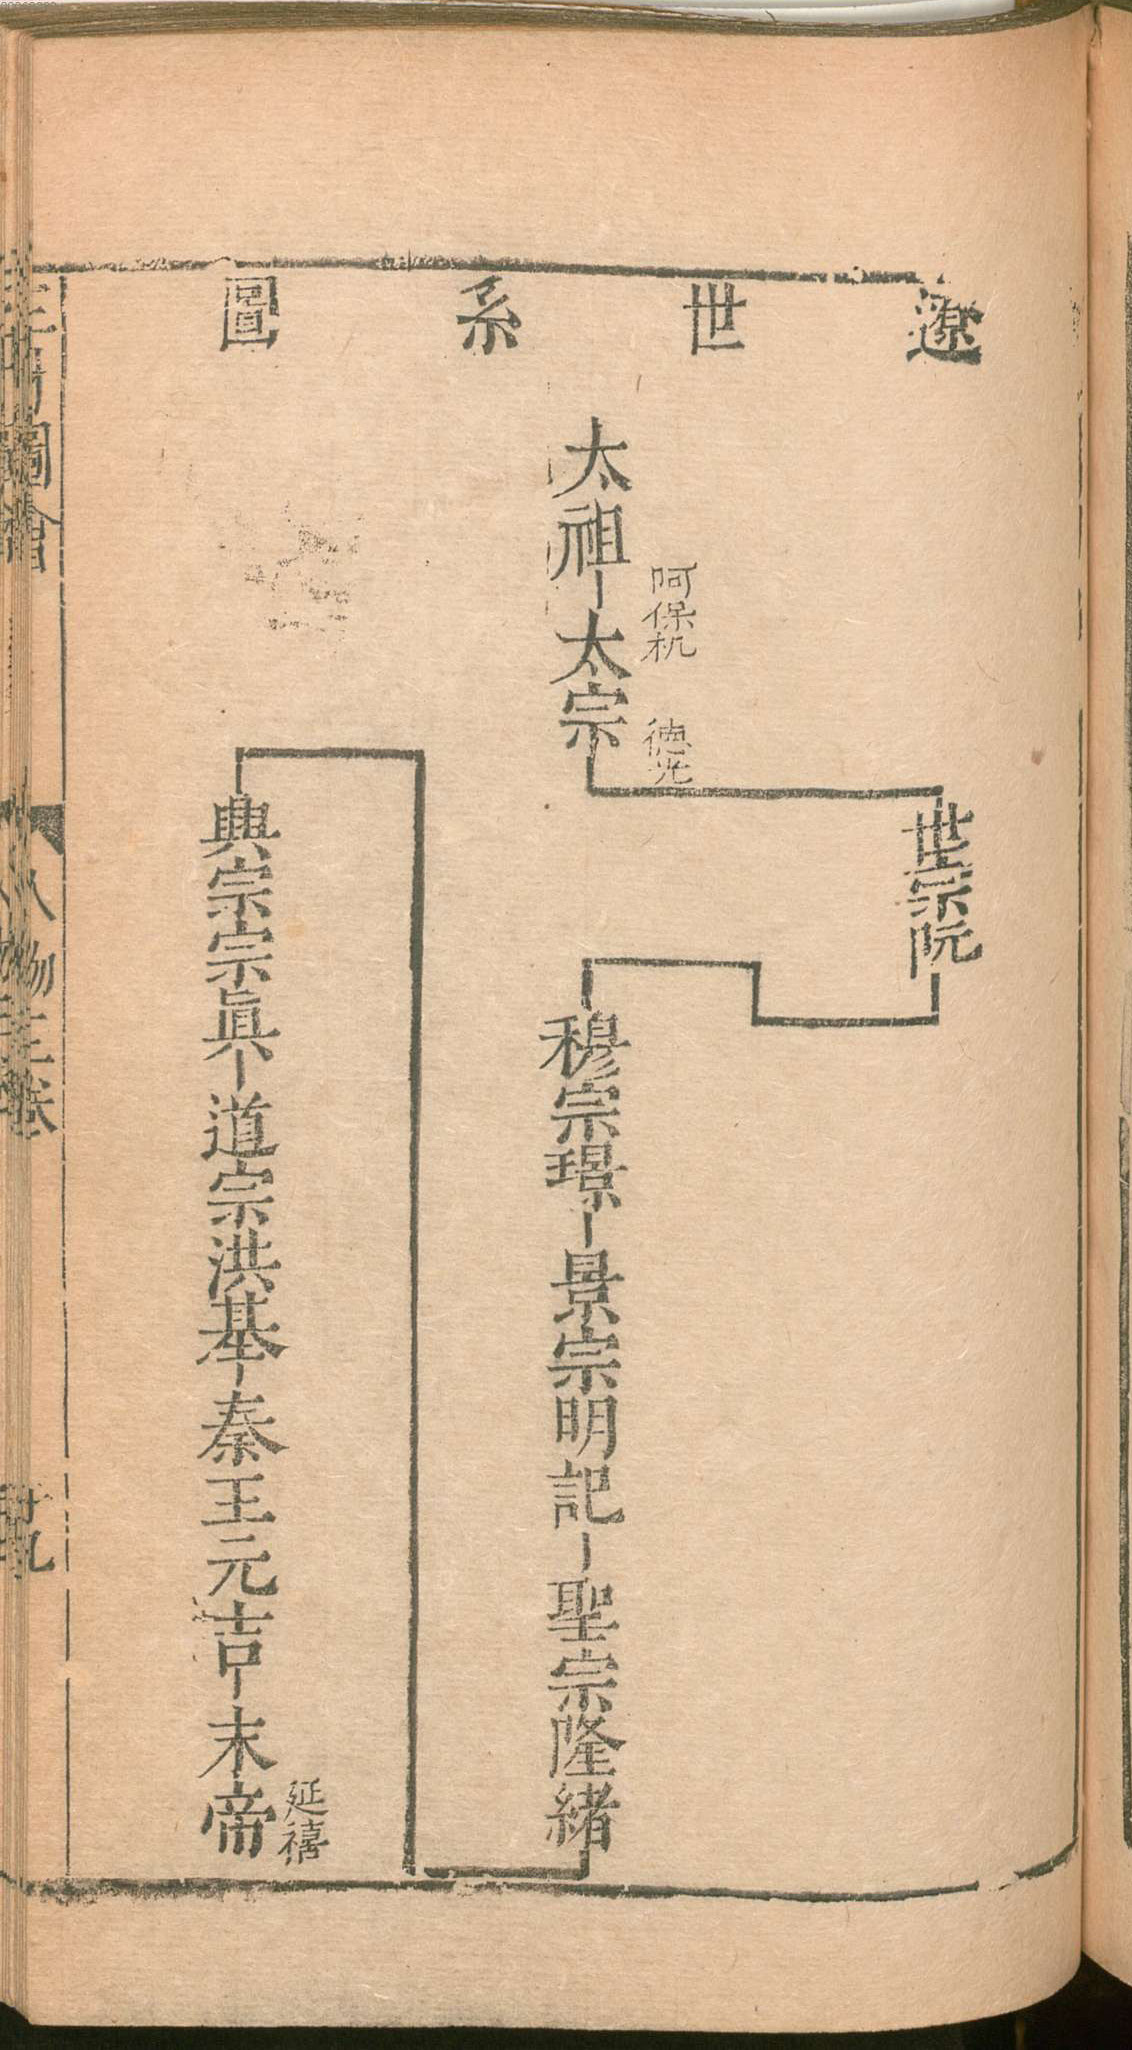 遼世系圖
太祖 太宗
阿保机
德光
世宗阮
穆宗璟 景宗明記 聖宗隆緒
興宗宗眞 道宗洪基 秦王元吉 末帝
延禧
圖會
人物三卷